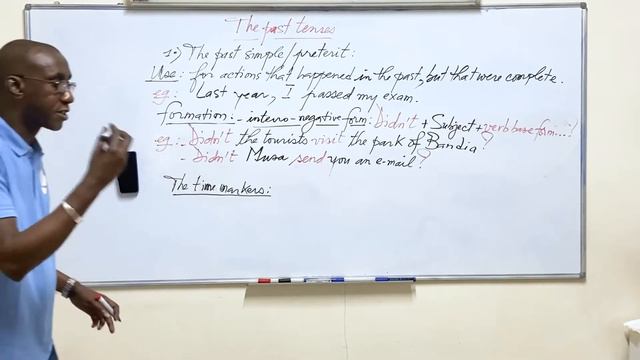 The past tenses
1.) The past simple/preterit:
Use: for actions that happened in the past, but that were complete.
eg: Last year, I passed my exam.
Formation:- interro-negative form: Didn't + Subject + verb base form...?
eg:- Didn't the tourists visit the park of Bandia?
- Didn't Musa send you an e-mail?
The time markers: